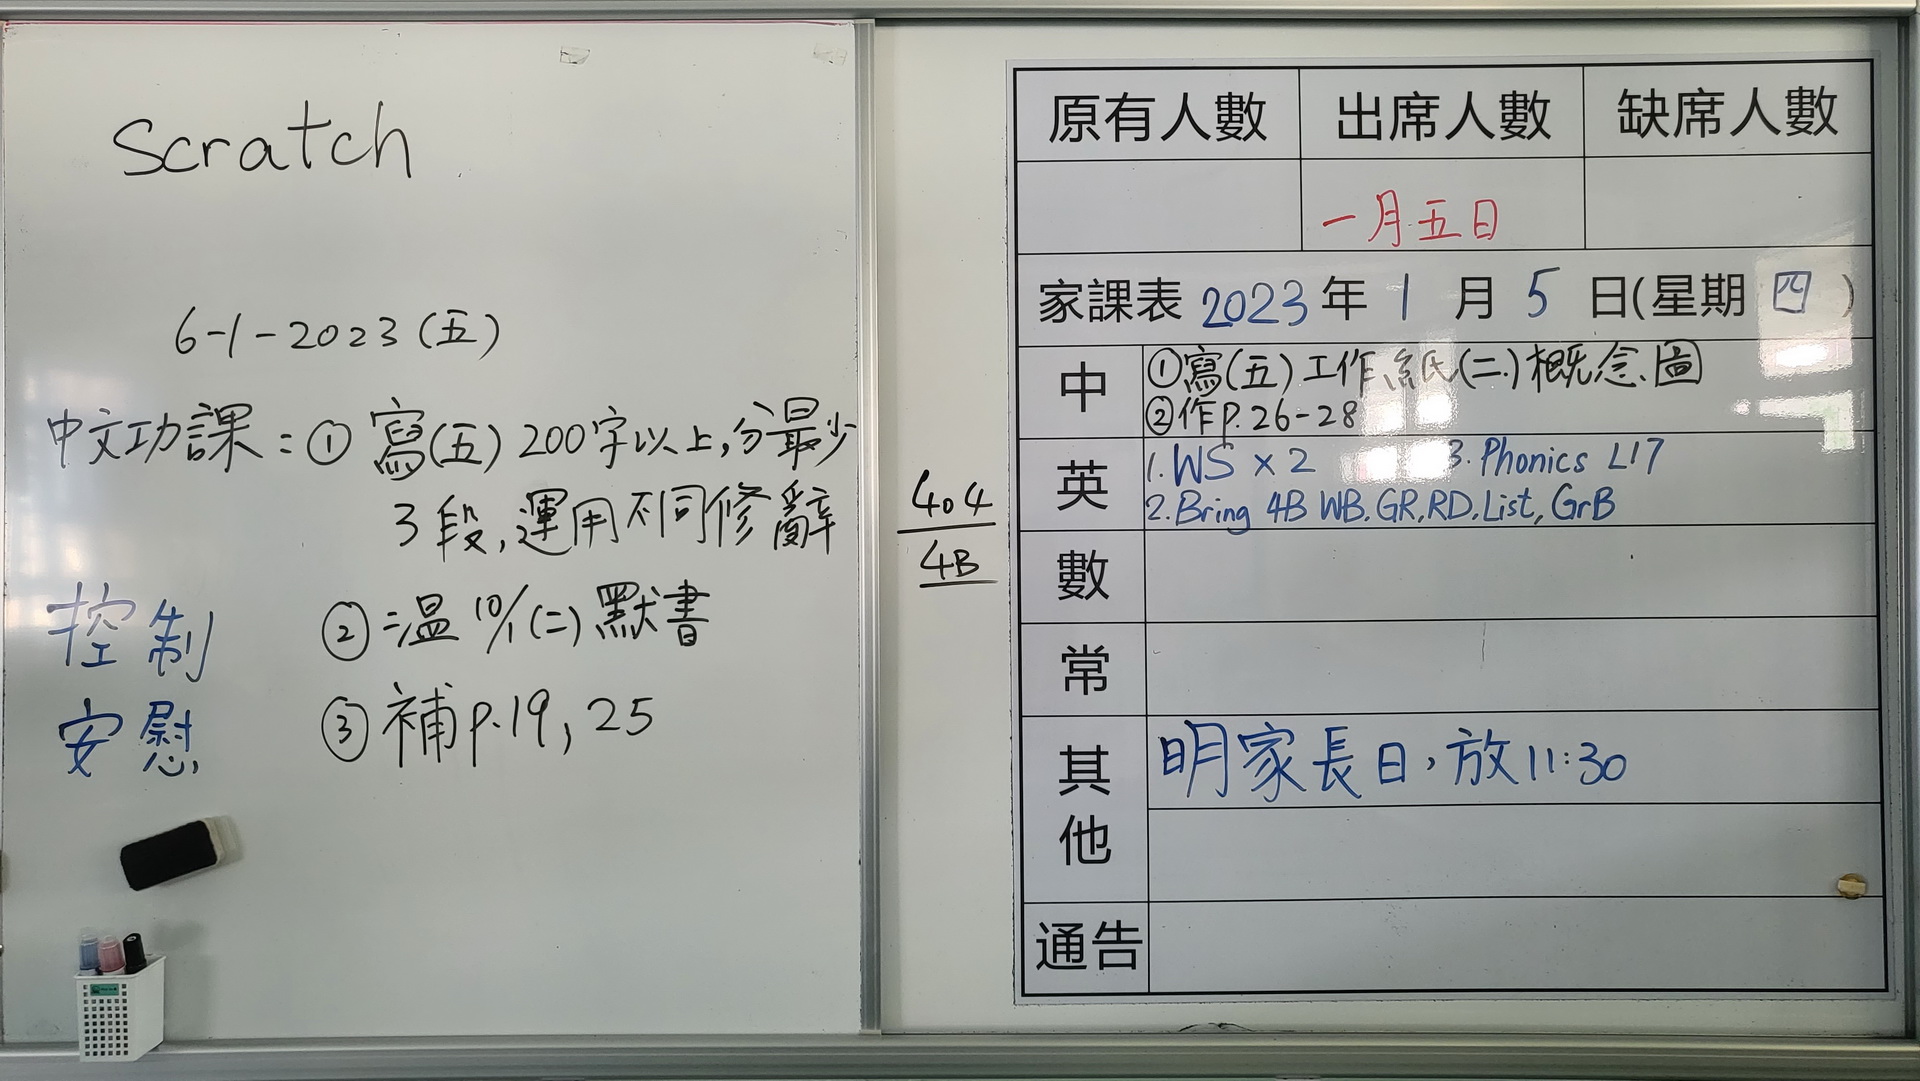 Scratch
6-1-2023(五)
中文功課：① 寫(五) 200字以上，分最少
3段，運用不同修辭
② 温 10/1(二) 默書
③ 補 p.19, 25
控制
安慰
404
4B
原有人數 出席人數 缺席人數
一月五日
家課表 2023 年 1 月 5 日(星期 四 )
中 ①寫(五)工作紙(二)概念圖
②作p.26-28
英 1. WS x 2 3. Phonics L17
2. Bring 4B WB, GR, RD, List, GrB
數
常
其他 明家長日，放11:30
通告